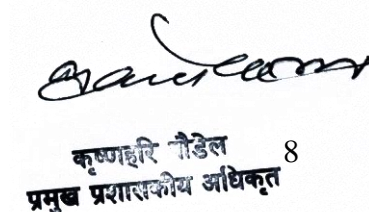 कृष्णहरि पौडेल
8
प्रमुख प्रशासकीय अधिकृत